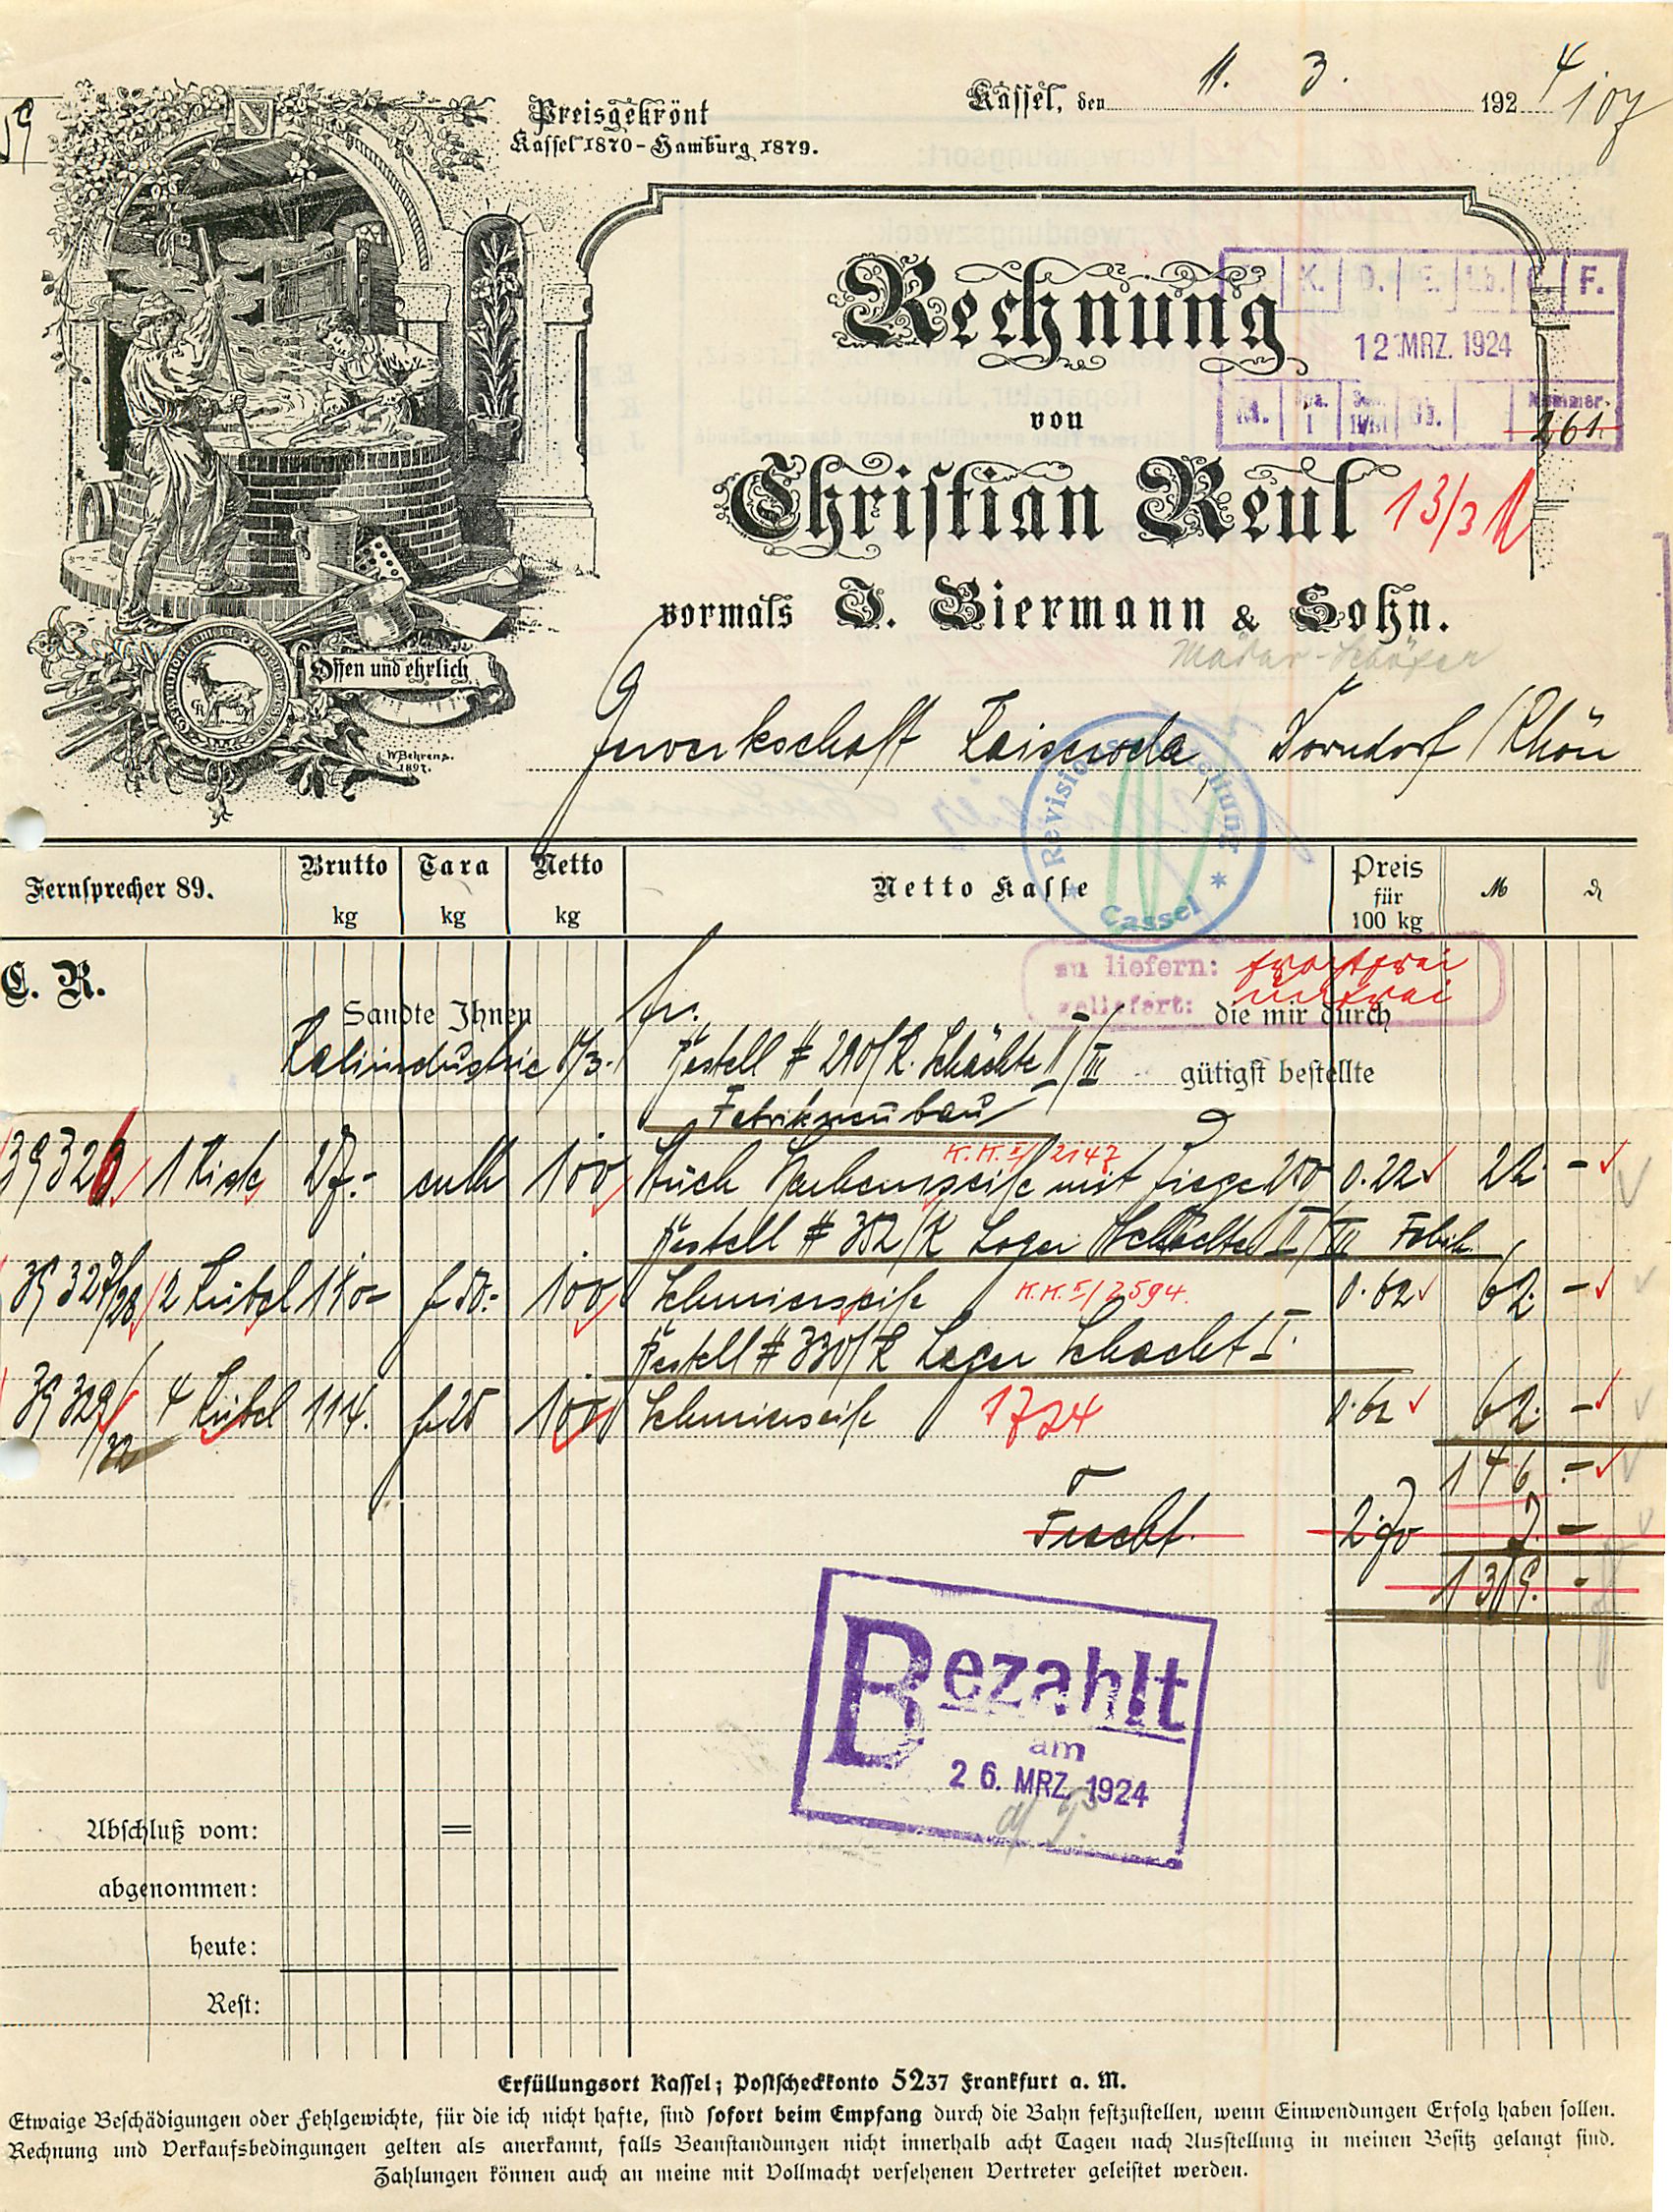 59
Preisgekrönt
Kassel 1870 - Hamburg 1879.
Kassel, den 11. 3. 1924
107
Rechnung
K. D. E. Lb. F.
12. MRZ. 1924
M. I Nummer.
261.
von
Christian Reul
13/3
vormals J. Biermann & Sohn.
Offen und ehrlich
W. Behrens.
1897.
Gewerkschaft Kaiseroda Dorndorf / Rhön
Revision Cassel
Fernsprecher 89.
Brutto kg
Tara kg
Netto kg
Netto Kasse
Preis für 100 kg
M
₰
C. R.
zu liefern: frachtfrei
geliefert: unfrei
Sandte Ihnen fr. die mir durch
Kaliindustrie
Bestell # 290/K. Schächte II/III gütigst bestellte
Fabrikneubau
K.K. I/2147
39326 1 Kiste 100 Stück mit Ziege 0.22 22. -
Bestell # 352/K Lager Schächte II/III Fabrik
39327/28 2 Kübel 100 Schmierseife K.K. I/2594. 0.62 62. -
Bestell # 330/K Lager Schacht I.
39329/32 4 Kübel 114. 100 Schmierseife 1724 0.62 62. -
146. -
Fracht. 2.70 7. -
139. -
Bezahlt
am
26. MRZ. 1924
Abschluß vom:
abgenommen:
heute:
Rest:
Erfüllungsort Kassel; Postscheckkonto 5237 Frankfurt a. M.
Etwaige Beschädigungen oder Fehlgewichte, für die ich nicht hafte, sind sofort beim Empfang durch die Bahn festzustellen, wenn Einwendungen Erfolg haben sollen.
Rechnung und Verkaufsbedingungen gelten als anerkannt, falls Beanstandungen nicht innerhalb acht Tagen nach Ausstellung in meinen Besitz gelangt sind.
Zahlungen können auch an meine mit Vollmacht versehenen Vertreter geleistet werden.